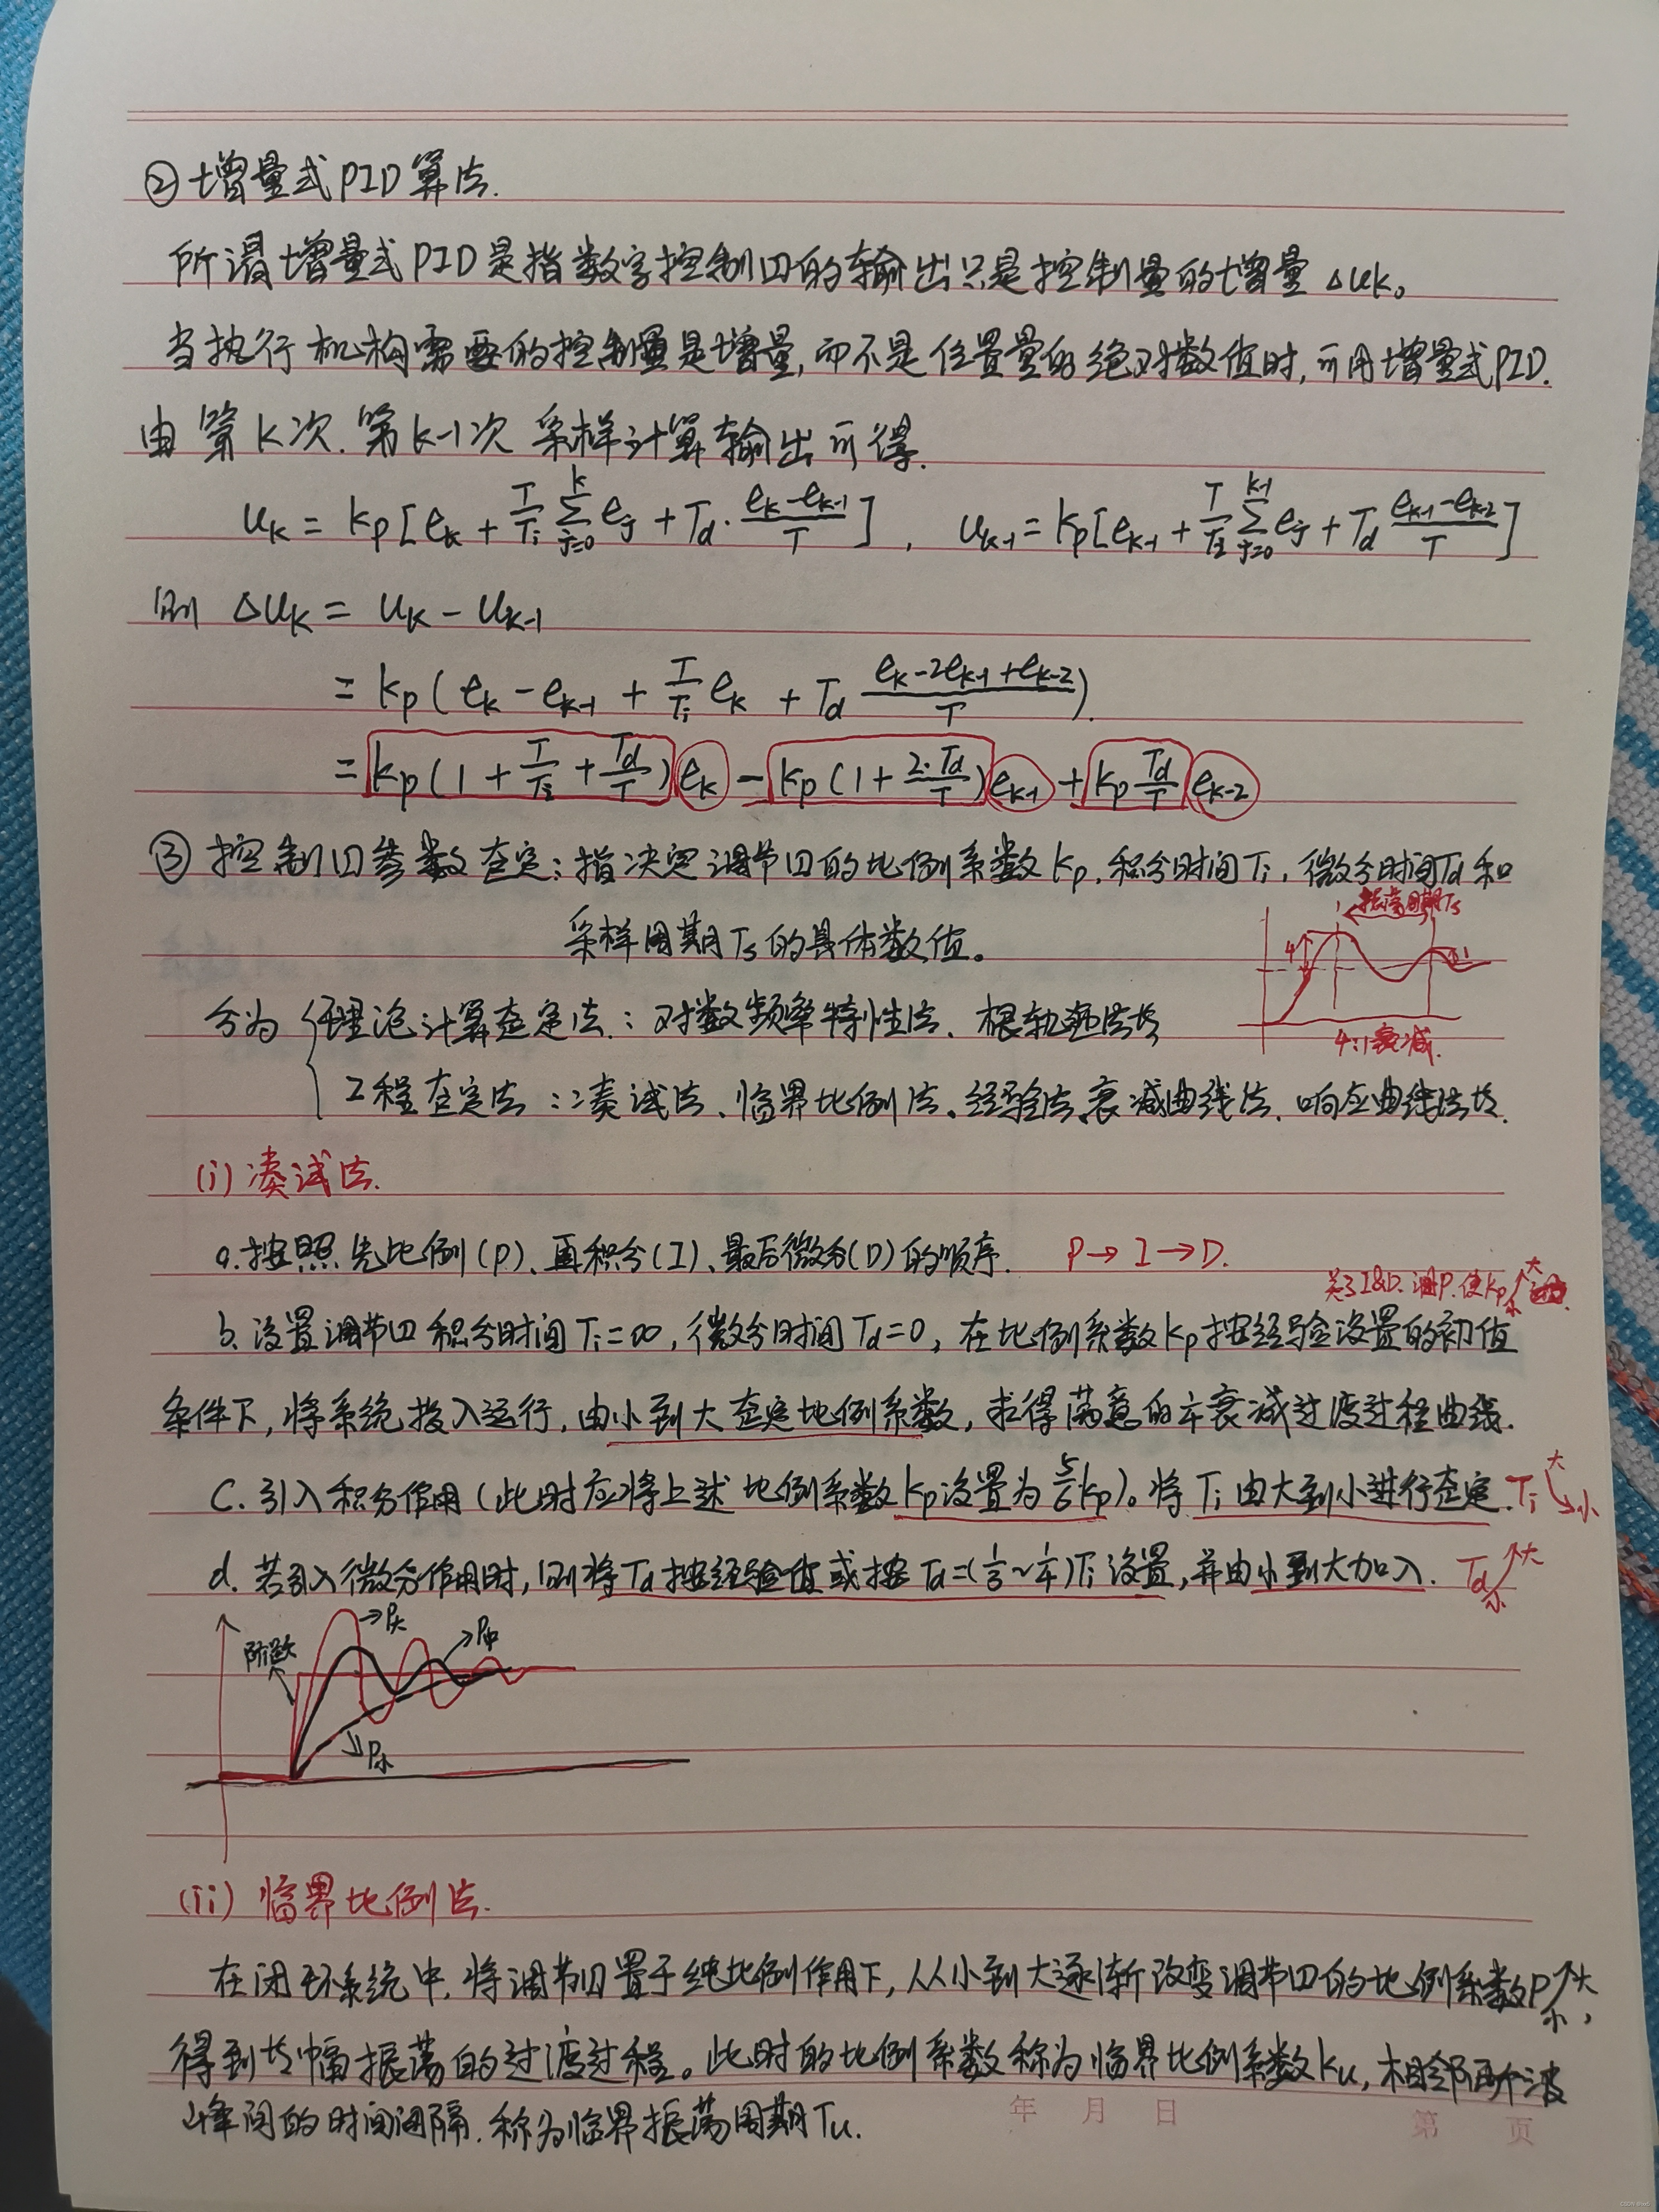 ② 增量式PID算法.
所谓增量式PID是指数字控制器的输出只是控制量的增量 Δuk。
当执行机构需要的控制量是增量,而不是位置量的绝对数值时,可用增量式PID.
由第K次.第k-1次 采样计算输出可得.
uk = kp[ek + T/Ti Σ(j=0→k) ej + Td·(ek-ek-1)/T] , uk-1 = kp[ek-1 + T/Ti Σ(j=0→k-1) ej + Td (ek-1-ek-2)/T]
则 Δuk = uk - uk-1
= kp(ek - ek-1 + T/Ti ek + Td (ek-2ek-1+ek-2)/T).
= kp(1 + T/Ti + Td/T) ek - kp(1 + 2·Td/T) ek-1 + kp Td/T ek-2
③ 控制器参数整定:指决定调节器的比例系数kp.积分时间Ti,微分时间Td和
采样周期Ts的具体数值。
振荡周期Ts
4
1
4:1衰减.
分为 { 理论计算整定法:对数频率特性法、根轨迹法等
工程整定法:凑试法、临界比例法、经验法、衰减曲线法.响应曲线法等.
(i) 凑试法.
a.按照先比例(P)、再积分(I)、最后微分(D)的顺序. P→I→D.
关了I&D.调P.使kp 小↗大
b.设置调节器积分时间Ti=∞,微分时间Td=0,在比例系数kp按经验设置的初值
条件下,将系统投入运行,由小到大整定比例系数,求得满意的1/4衰减过渡过程曲线.
C.引入积分作用(此时应将上述比例系数kp设置为5/6kp)。将Ti由大到小进行整定. Ti 大↘小
d.若引入微分作用时,则将Td按经验值或按Td=(1/3~1/4)Ti设置,并由小到大加入. Td 小↗大
阶跃
→P大
P中
P小
(ii) 临界比例法.
在闭环系统中.将调节器置于纯比例作用下,从小到大逐渐改变调节器的比例系数P 小↗大,
得到等幅振荡的过渡过程。此时的比例系数称为临界比例系数ku,相邻两个波
峰间的时间间隔.称为临界振荡周期Tu.
年 月 日
第 页